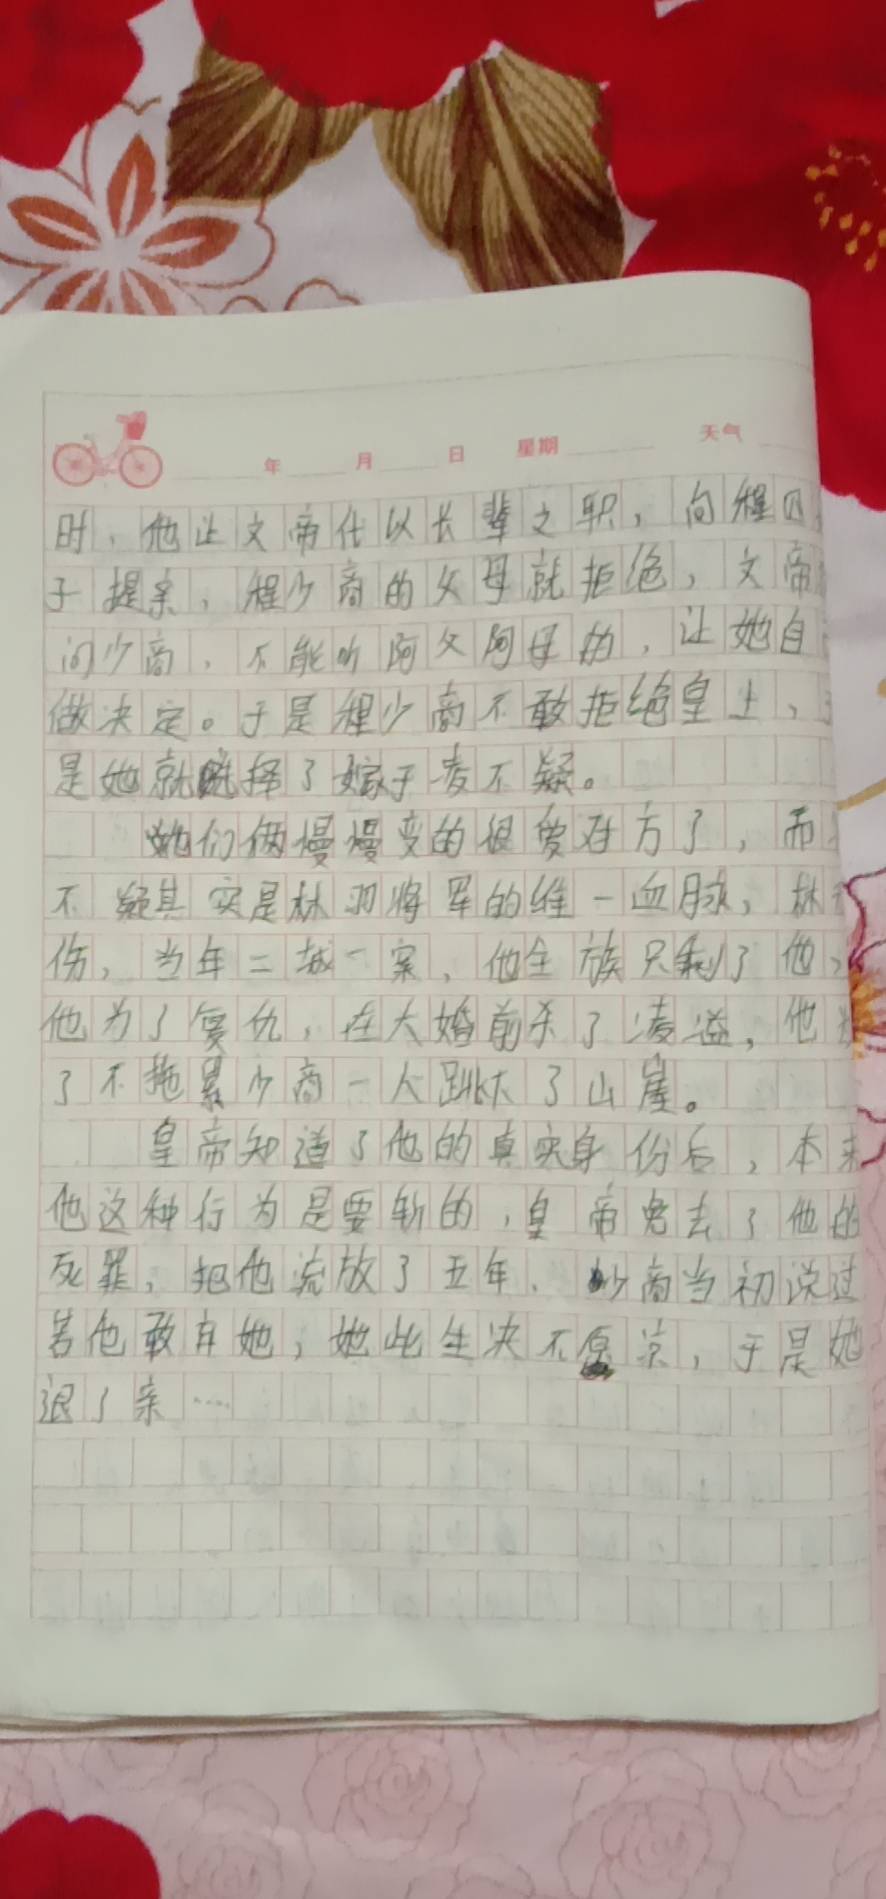 年 月 日 星期 天气
时，他让文帝代以长辈之职，向程四
子提亲，程少商的父母就拒绝，文帝
问少商，不能听阿父阿母的，让她自
做决定。于是程少商不敢拒绝皇上，于
是她就选择了嫁于凌不疑。
她们俩慢慢变的很爱对方了，而
不疑其实是林羽将军的维一血脉，林
伤，当年二城一案，他全族只剩了他，
他为了复仇，在大婚前杀了凌溢，他为
了不拖累少商一人跳下了山崖。
皇帝知道了他的真实身份后，本来
他这种行为是要斩的，皇帝免去了他的
死罪，把他流放了五年，少商当初说过
若他敢弃她，她此生决不愿谅，于是她
退了亲……